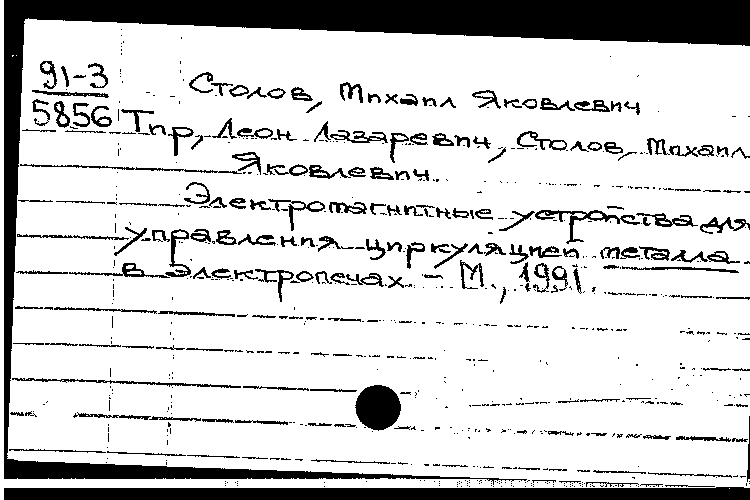 91-3
5856
Столов, Михаил Яковлевич
Тир, Леон Лазаревич, Столов, Михаил
Яковлевич.
Электромагнитные устройства для
управления циркуляцией металла
в электропечах. - М., 1991.